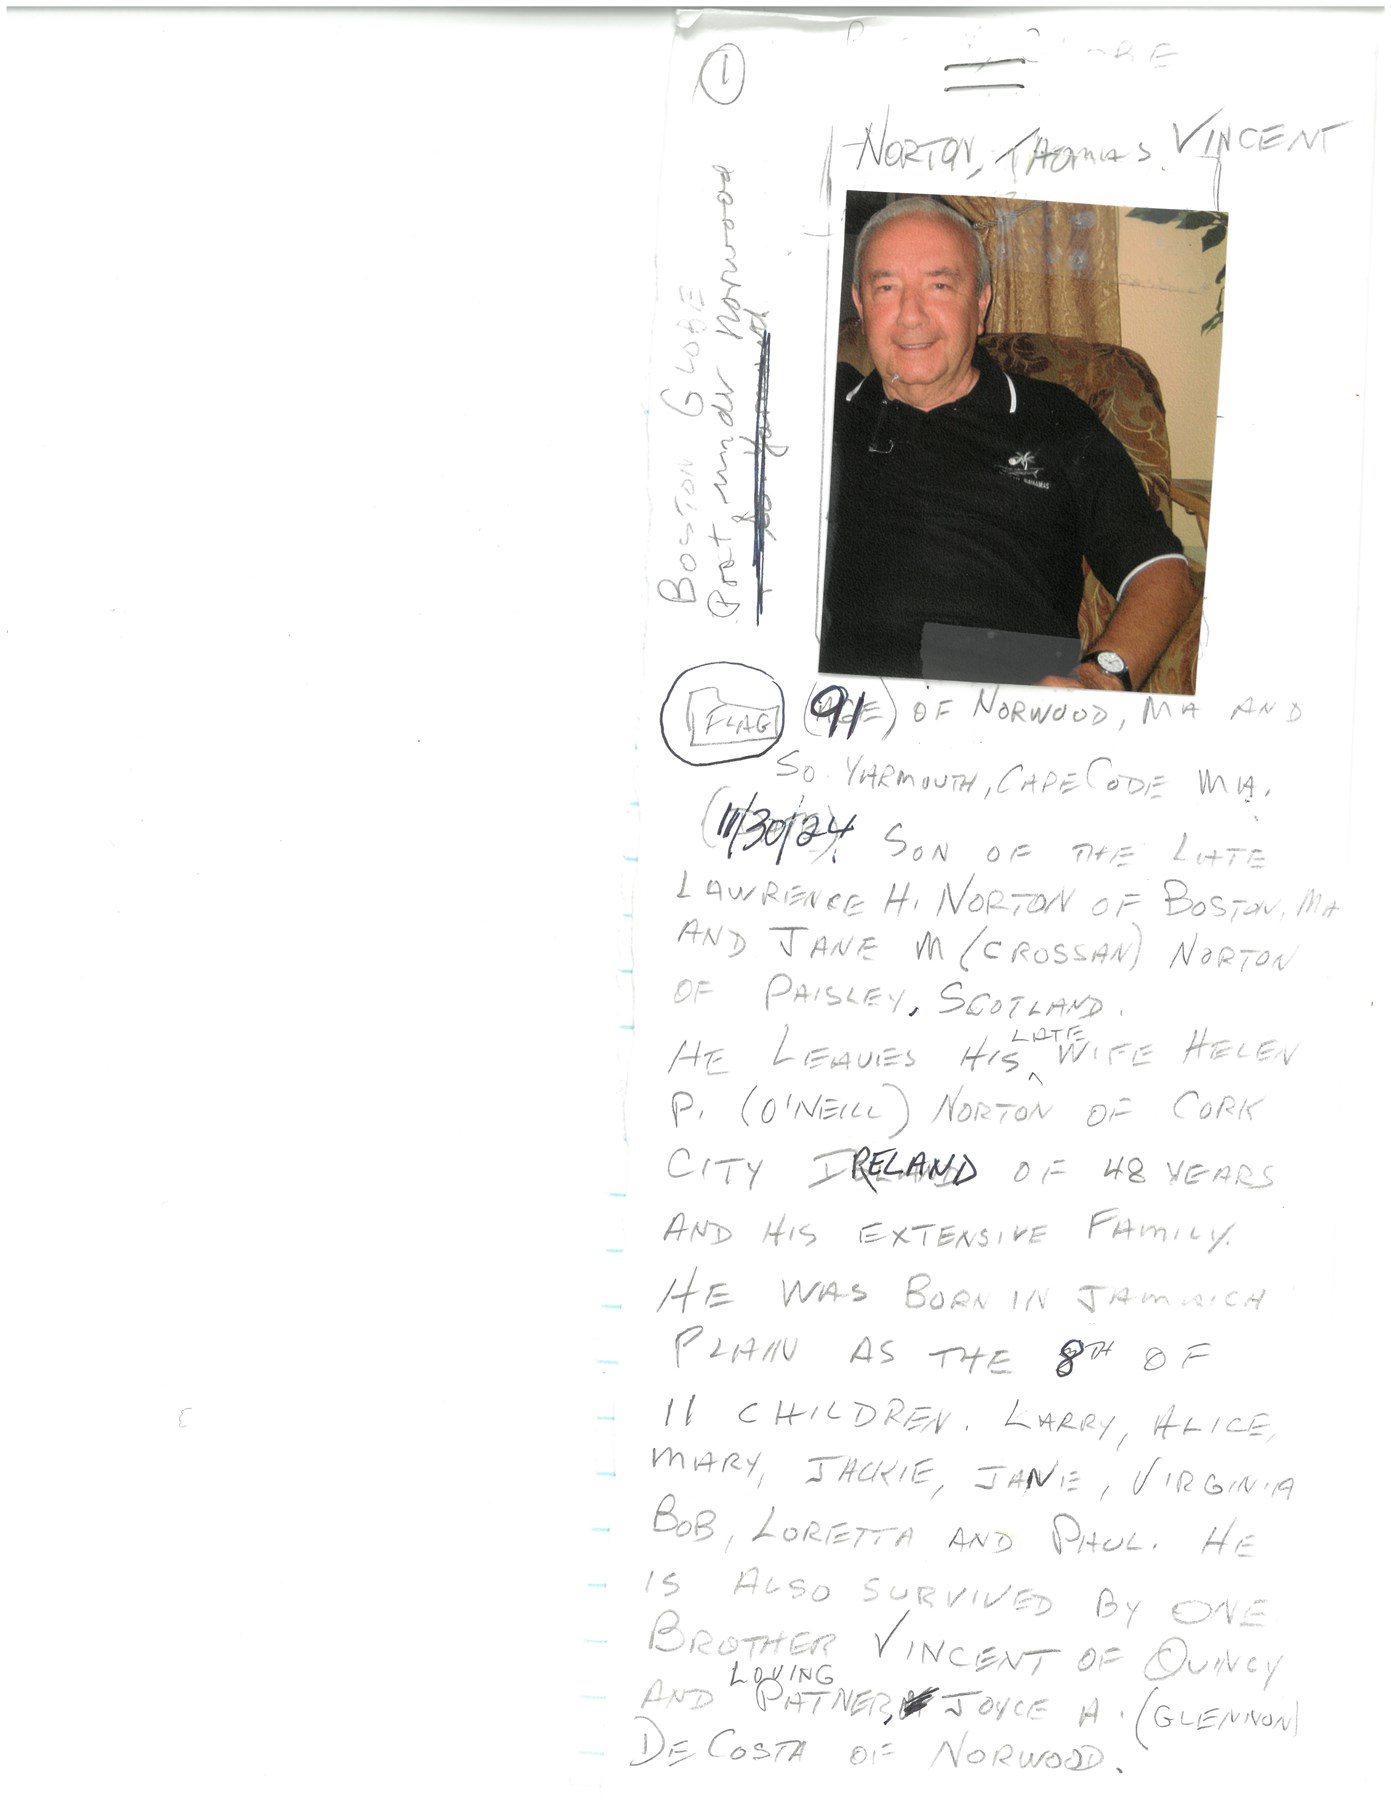 1
NORTON, THOMAS VINCENT
BOSTON GLOBE
Post under Norwood
BAHAMAS
FLAG
91 OF NORWOOD, MA AND
SO. YARMOUTH, CAPE CODE MA.
11/30/24. SON OF THE LATE
LAWRENCE H. NORTON OF BOSTON, MA
AND JANE M (CROSSAN) NORTON
OF PAISLEY, SCOTLAND.
HE LEAVES HIS LATE WIFE HELEN
P. (O'NEILL) NORTON OF CORK
CITY IRELAND OF 48 YEARS
AND HIS EXTENSIVE FAMILY.
HE WAS BORN IN JAMAICA
PLAIN AS THE 8TH OF
11 CHILDREN. LARRY, ALICE,
MARY, JACKIE, JANE, VIRGINIA
BOB, LORETTA AND PAUL. HE
IS ALSO SURVIVED BY ONE
BROTHER VINCENT OF QUINCY
AND LOVING PATNER, JOYCE A. (GLENNON)
DECOSTA OF NORWOOD.